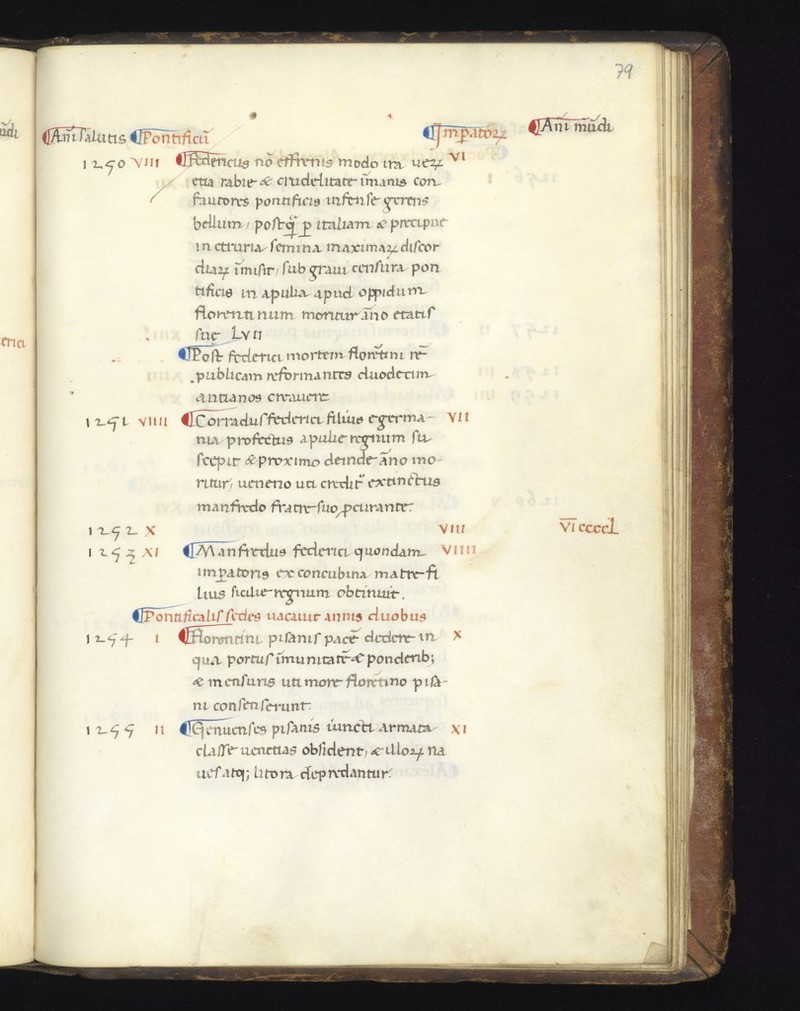 79
Anī Salutis Pontificū Imꝑatoꝝ Anī mūdi
1250 VIII Federicus nō effrenis modo ira ueꝝ VI
etiā rabie & crudelitate īmanis con
fautores pontificis infense gerens
bellum, postq̄ ꝑ italiam & precipue
in etruria semina maximaꝝ discor
diaꝝ īmisit, sub graui censura pon
tificis in apulia apud oppidum
florentinum moritur āno etatis
suę LVII
Post federici mortem florētini rē
publicam reformantes duodecim
antianos creauere
1251 VIIII Corradus federici filius e germa- VII
nia profectus apulie regnum su
scepit & proximo deinde āno mo-
ritur, ueneno uti credit᷑ extinctus
manfredo fratre suo ꝓcurante.
1252 X VIII VĪccccL
1253 XI Manfredus federici quondam VIIII
imꝑatoris ex concubina matre fi
lius sicilie regnum obtinuit.
Pontificalis sedes uacauit annis duobus
1254 I Florentini pisanis pacē dedere in X
qua portus īmunitatē & ponderib;
& mensuris uti more florētino pisa-
ni consenserunt.
1255 II Genuenses pisanis iuncti armata XI
classe uenetias obsident, & illoꝝ na
ues atq; litora depredantur.